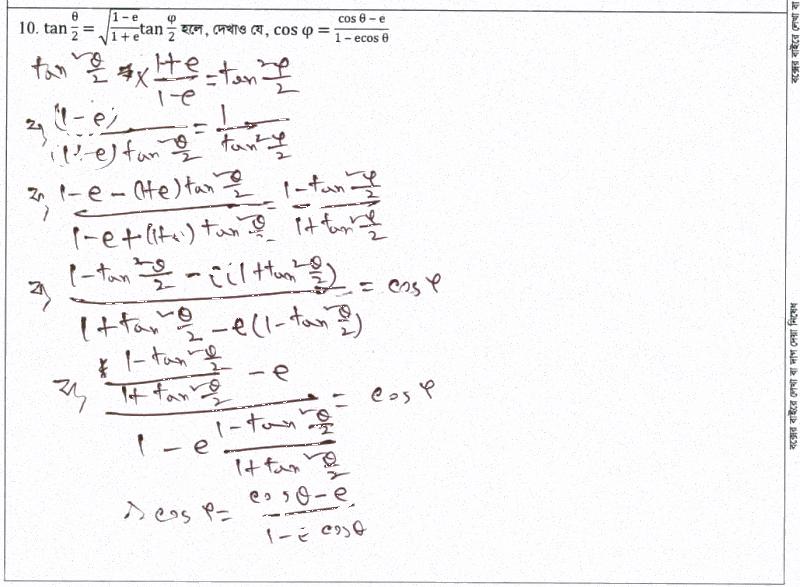 10. tan θ/2 = √((1−e)/(1+e)) tan φ/2 হলে, দেখাও যে, cos φ = (cos θ − e)/(1 − ecos θ)
tan² θ/2 × (1+e)/(1−e) = tan² φ/2
বা, (1−e)/((1+e) tan² θ/2) = 1/(tan² φ/2)
বা, (1−e−(1+e) tan² θ/2)/(1−e+(1+e) tan² θ/2) = (1−tan² φ/2)/(1+tan² φ/2)
বা, (1−tan² θ/2 − e(1+tan² θ/2))/(1+tan² θ/2 − e(1−tan² θ/2)) = cos φ
বা, ((1−tan² θ/2)/(1+tan² θ/2) − e)/(1 − e (1−tan² θ/2)/(1+tan² θ/2)) = cos φ
∴ cos φ = (cos θ − e)/(1 − e cos θ)
বক্সের বাইরে লেখা বা
বক্সের বাইরে লেখা বা দাগ দেয়া নিষেধ